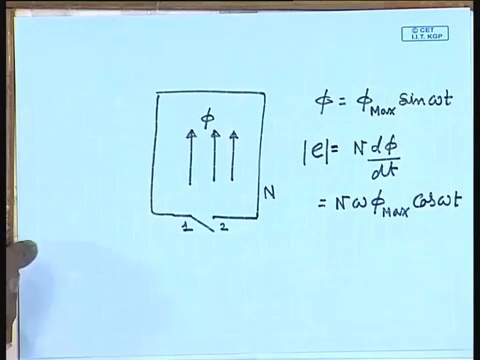 © CET
I.I.T. KGP
ϕ = ϕMax sinωt
ϕ
|e| = N dϕ/dt
N
= NωϕMax Cosωt
1 2